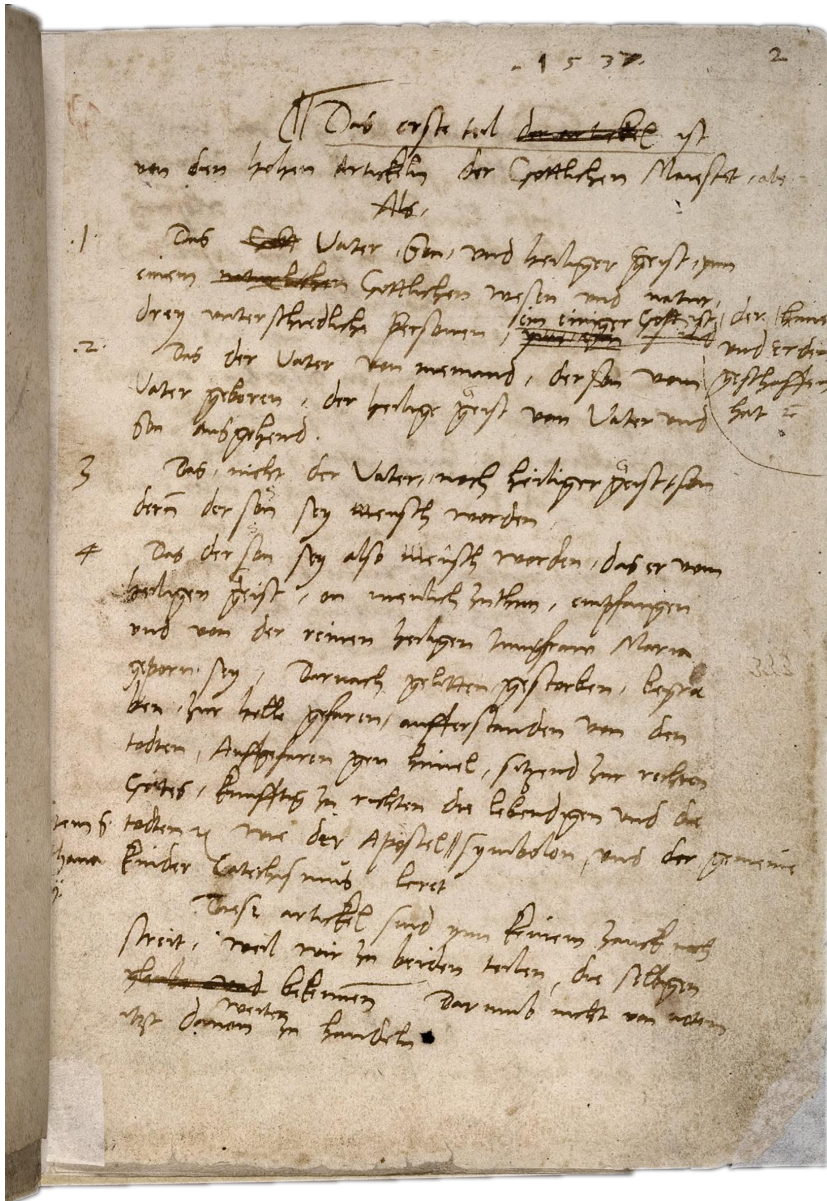 1537. 2
Das erste teil der artickel ist
von den hohen Artickeln der Gottlichen Maiestet,
Als,
.1. Das Gott Vater, Son, und heiliger geist, ynn
einem naturlichen Gottlichen wesen und natur,
drey unterschiedliche Personen, ein einiger Gott ist, der himel
und erden
geschaffen
hat ⁊c
.2. Das der Vater von niemand, der son vom
Vater geboren, der heilige geist von Vater und
Son ausgehend.
3 Das, nicht der Vater, noch heiliger geist, son
dern der son sey mensch worden
4 Das der son sey also mensch worden, das er vom
heiligen geist, on menlich zuthun, empfangen
und von der reinen heiligen Jungfraw Maria
geporn sey, Darnach gelitten, gestorben, begra
ben, zur helle gefaren, aufferstanden von den
todten, Auffgefaren gen himel, sitzend zur rechten
Gottes, kunfftig zu richten die lebendigen und die
todten ⁊c wie der Apostel symbolon, und der gemeine
Kinder Catechismus leret
Diese artickel sind ynn keinem zanck noch
streit, weil wir zu beiden teilen, die selbigen
gleuben und bekennen Darumb nicht von noten
itzt davon weiter zu handeln.